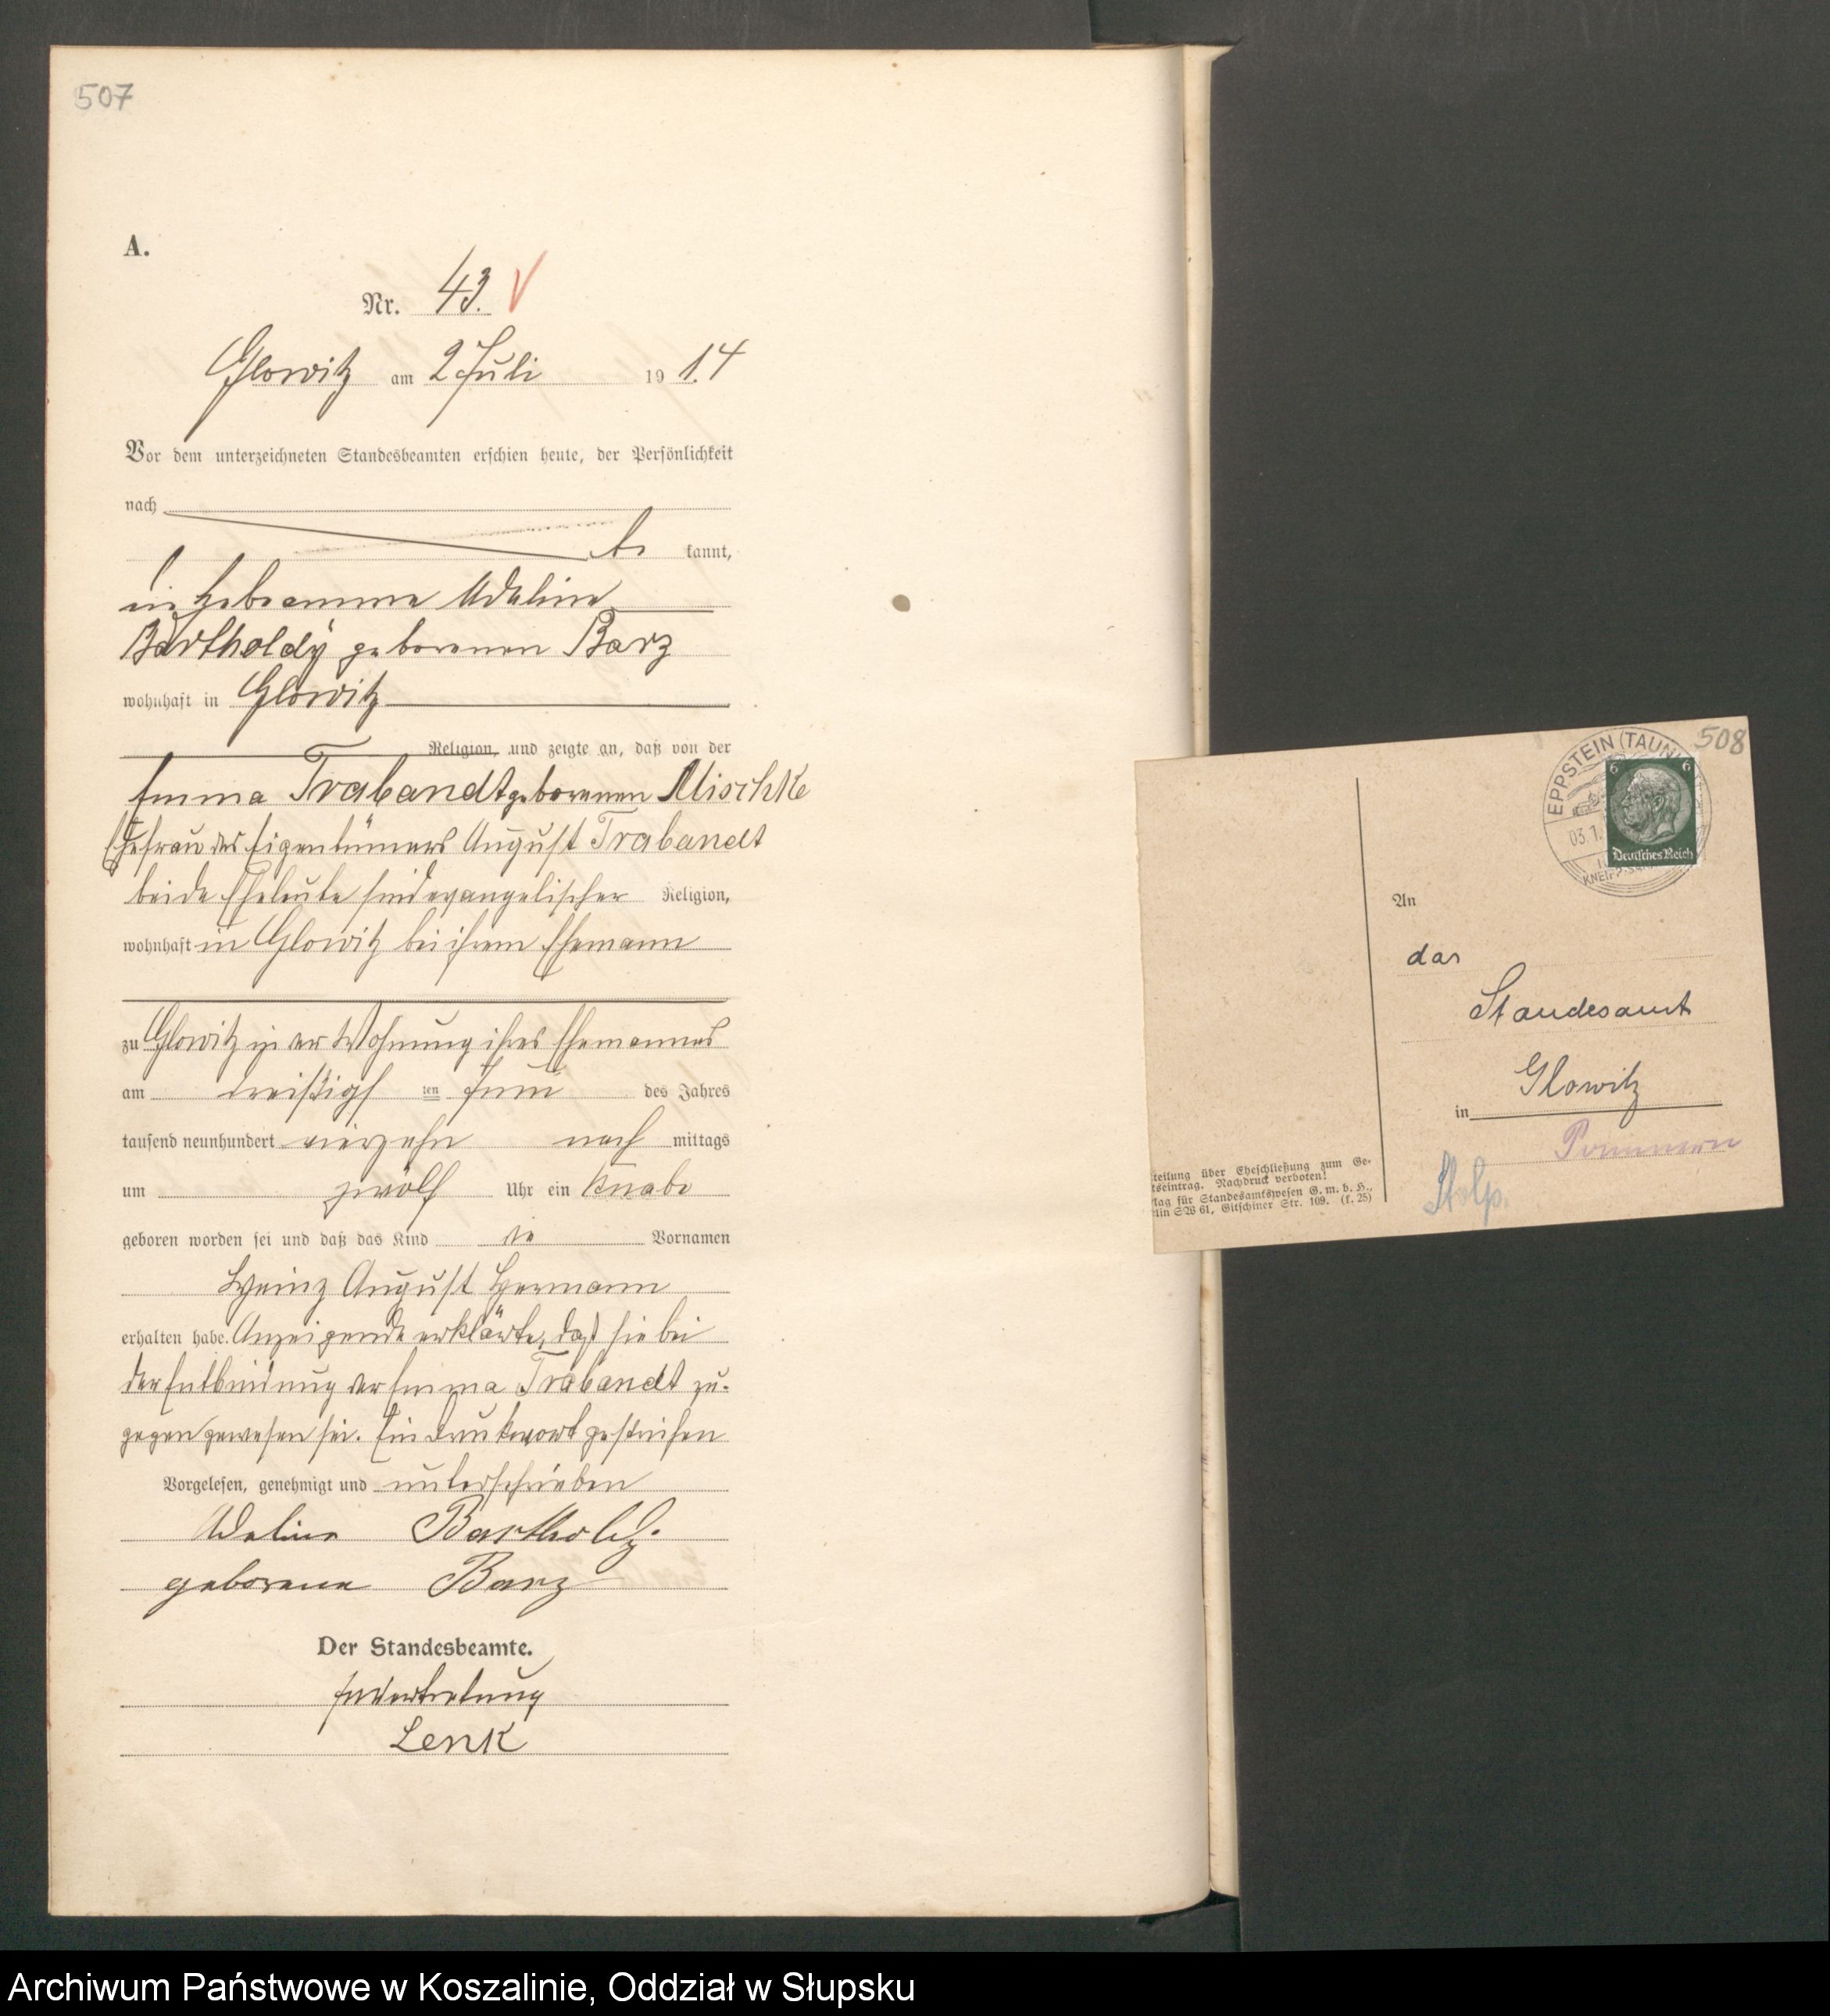 507
A.
Nr. 43.
Glowitz am 2 Juli 1914
Vor dem unterzeichneten Standesbeamten erschien heute, der Persönlichkeit
nach
be kannt,
die Hebeamme Adeline
Bartholdy geborenen Barz
wohnhaft in Glowitz
Religion, und zeigte an, daß von der
Emma Trabandt geborenen Mischke
Ehefrau des Eigentümers August Trabandt
beide Eheleute sind evangelischer Religion,
wohnhaft in Glowitz bei ihrem Ehemann
zu Glowitz in der Wohnung ihres Ehemannes
am dreißigs ten Juni des Jahres
tausend neunhundert vierzehn nach mittags
um zwölf Uhr ein Knabe
geboren worden sei und daß das Kind die Vornamen
Heinz August Hermann
erhalten habe. Anzeigende erklärte, daß sie bei
der Entbindung der Emma Trabandt zu-
gegen gewesen sei. Ein Druckwort gestrichen
Vorgelesen, genehmigt und unterschrieben
Adeline Bartholdy.
geborene Barz
Der Standesbeamte.
In Vertretung
Lenk
508
EPPSTEIN (TAUNUS)
03.1.
6 6
Deutsches Reich
An
das
Standesamt
Glowitz
in
Pommern
Stolp.
teilung über Eheschließung zum Ge-
tseintrag. Nachdruck verboten!
lag für Standesamtswesen G. m. b. H.,
lin SW 61, Gitschiner Str. 109. (f. 25)
Archiwum Państwowe w Koszalinie, Oddział w Słupsku